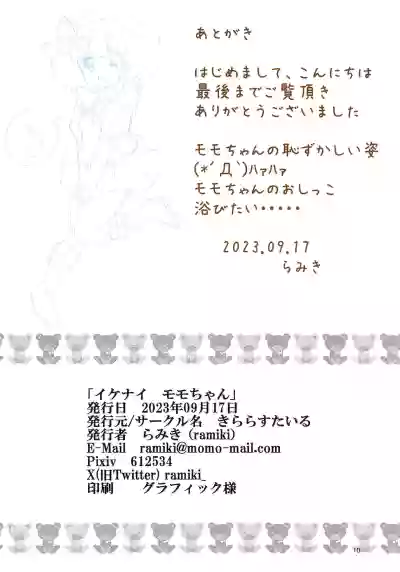 あとがき
はじめまして、こんにちは
最後までご覧頂き
ありがとうございました
モモちゃんの恥ずかしい姿
(*´Д`)ﾊｧﾊｧ
モモちゃんのおしっこ
浴びたい・・・・・
2023.09.17
らみき
「イケナイ　モモちゃん」
発行日　2023年09月17日
発行元/サークル名　きららすたいる
発行者　らみき (ramiki)
E-Mail　ramiki@momo-mail.com
Pixiv　612534
X(旧Twitter) ramiki_
印刷　　グラフィック様
10